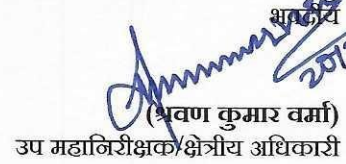 भवदीय
(श्रवण कुमार वर्मा)
उप महानिरीक्षक/क्षेत्रीय अधिकारी